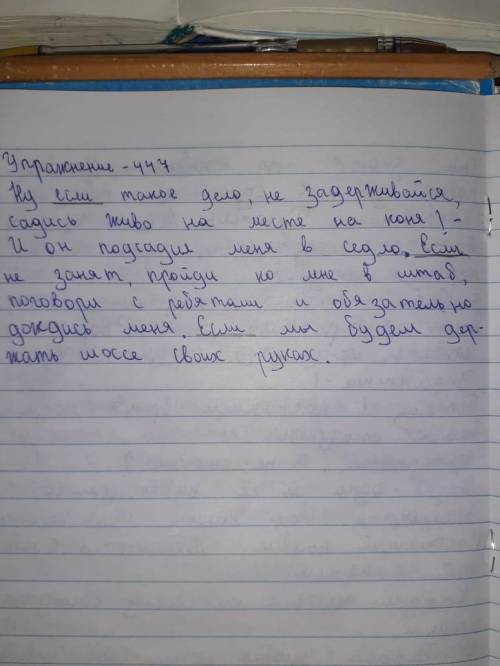 Упражнение - 447
Ну если такое дело, не задерживайся,
садись живо на месте на коня! -
И он подсадил меня в седло. Если
не занят, пройди ко мне в штаб,
поговори с ребятами и обязательно
дождись меня. Если мы будем дер-
жать шоссе своих руках.